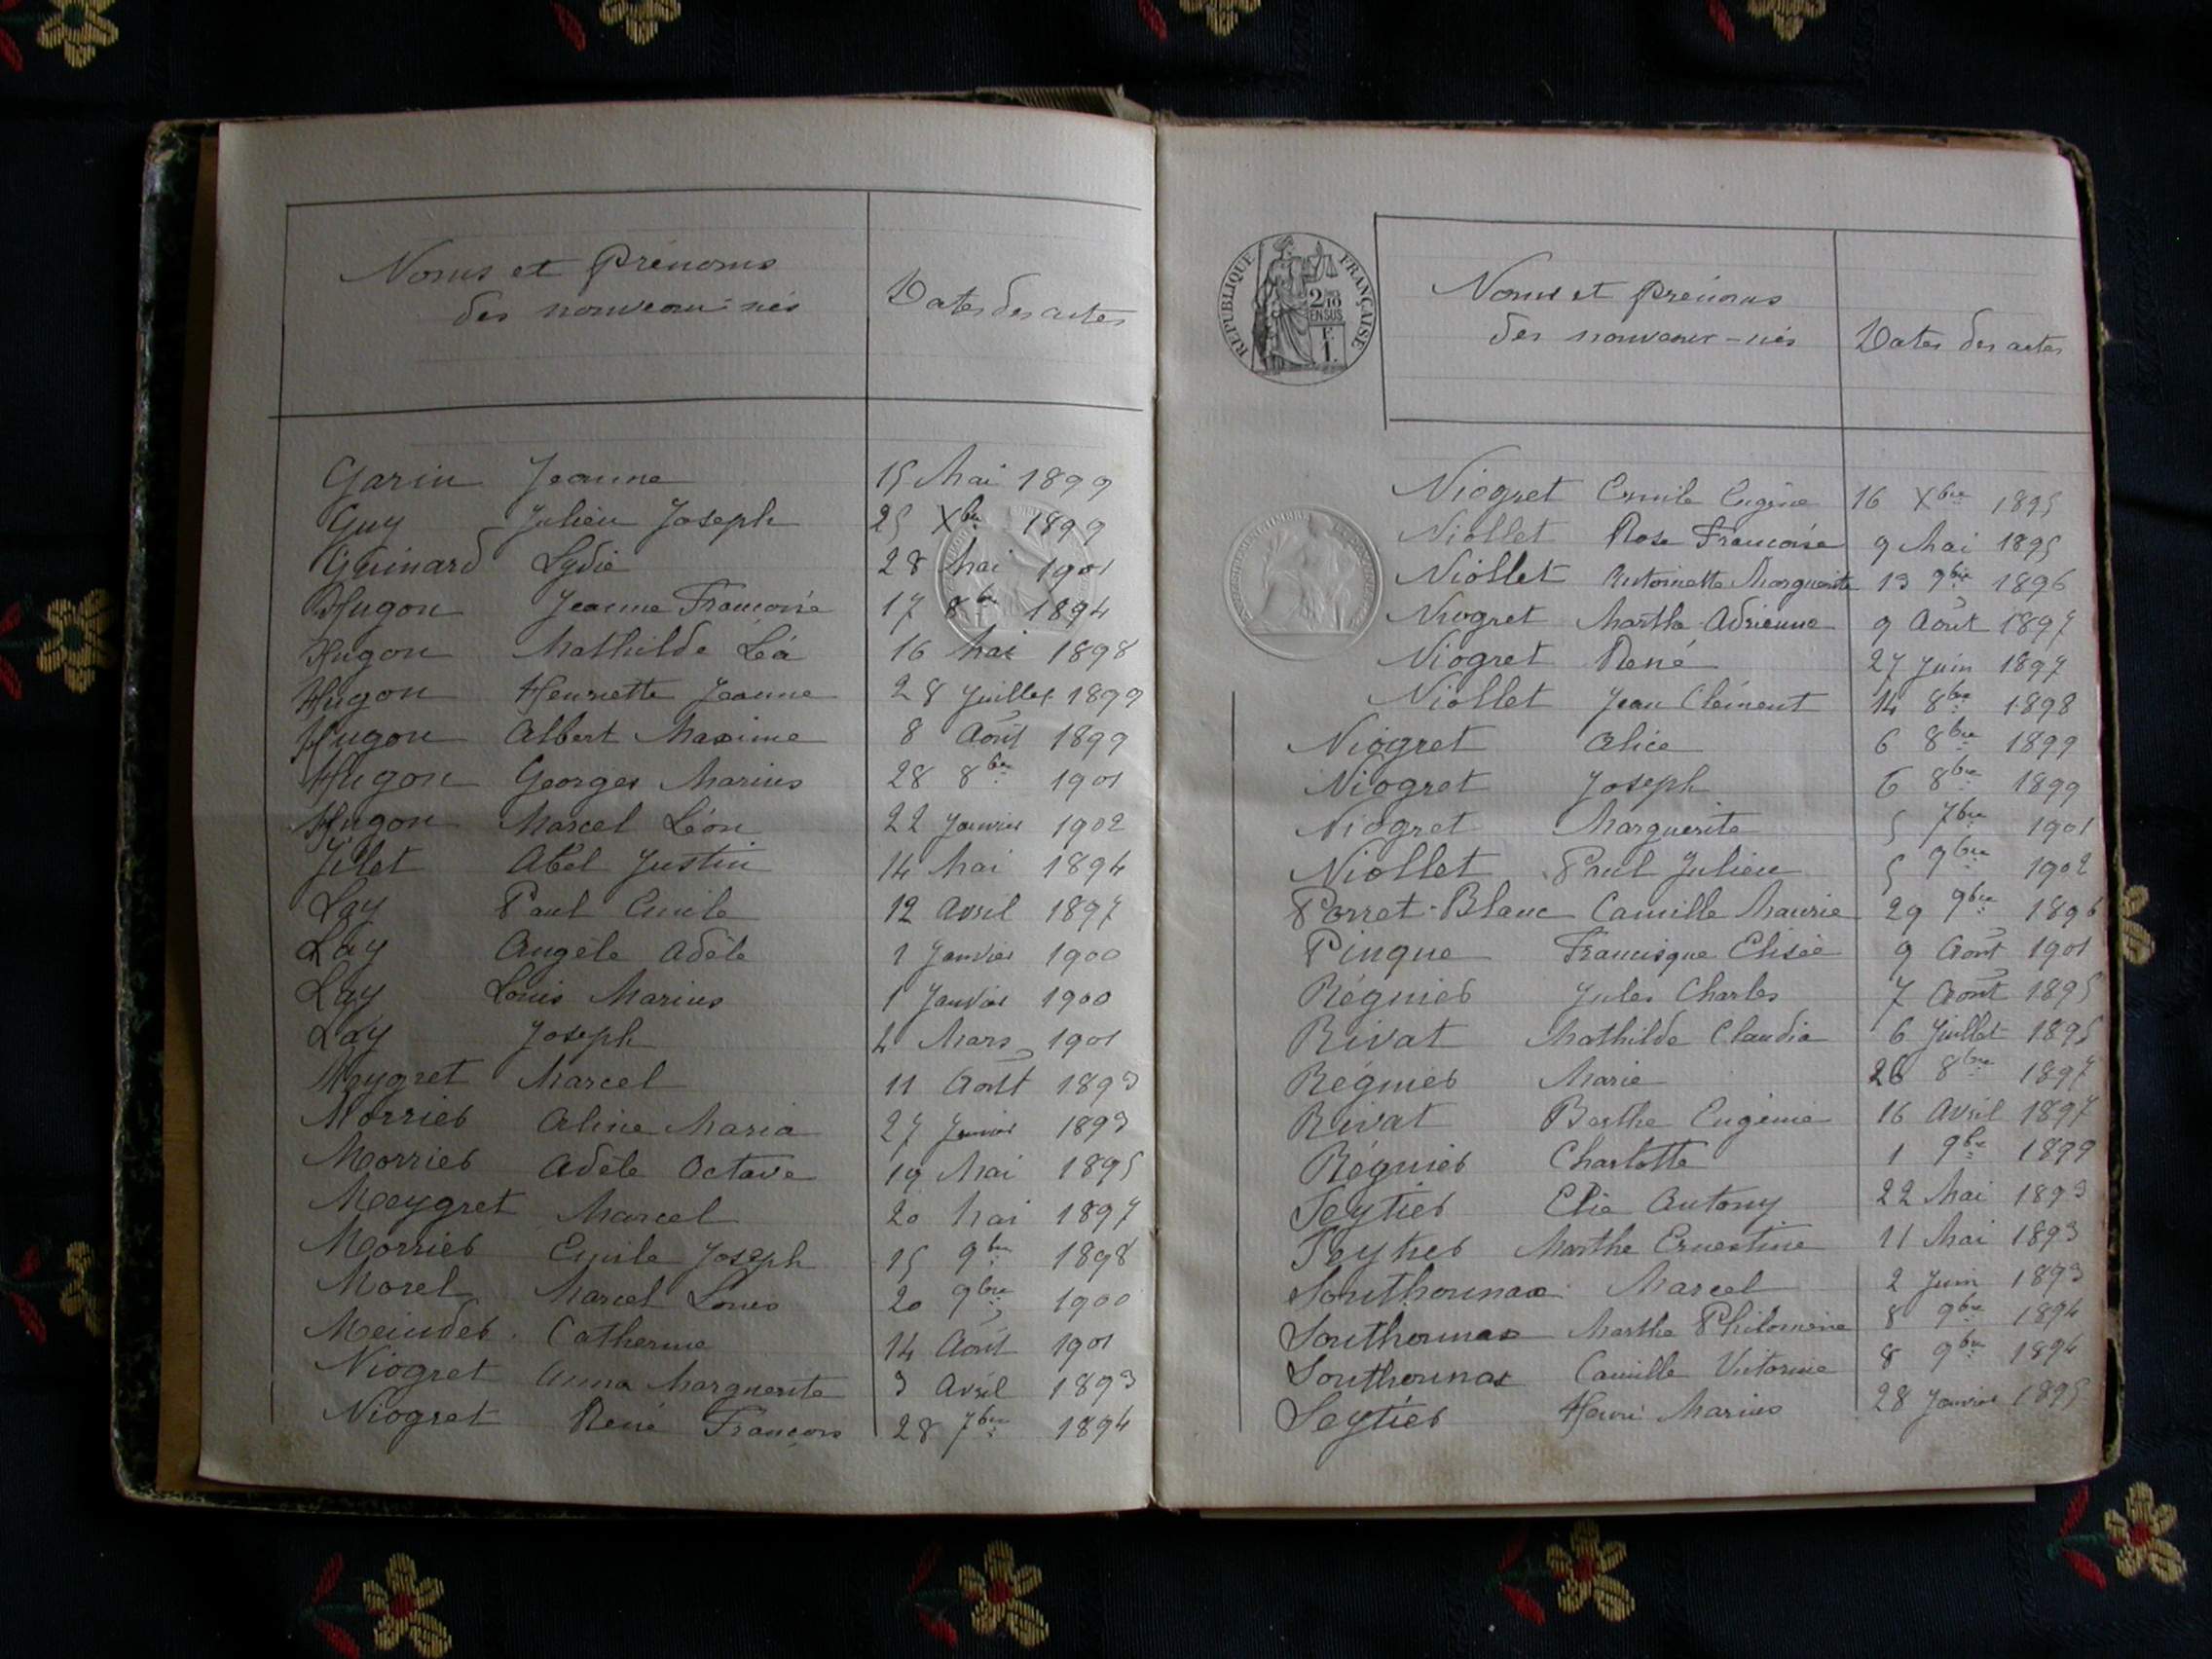 Noms et Prénoms
des nouveau-nés
Dates des actes
Garin Jeanne 15 Mai 1899
Guy Julien Joseph 25 Xbre 1899
Guinard Lydie 28 Mai 1901
Hugon Jeanne Françoise 17 8bre 1894
Hugon Mathilde Léa 16 Mai 1898
Hugon Henriette Jeanne 28 Juillet 1899
Hugon Albert Maxime 8 Août 1899
Hugon Georges Marius 28 8bre 1901
Hugon Marcel Léon 22 Janvier 1902
Jilet Abel Justin 14 Mai 1894
Lay Paul Emile 12 Avril 1897
Lay Angèle Adèle 1 Janvier 1900
Lay Louis Marius 1 Janvier 1900
Lay Joseph 4 Mars 1901
Meygret Marcel 11 Août 1893
Morrier Aline Maria 27 Janvier 1893
Morrier Adèle Octave 19 Mai 1895
Meygret Marcel 20 Mai 1897
Morrier Emile Joseph 15 9bre 1898
Morel Marcel Louis 20 9bre 1900
Meinder Catherine 14 Août 1901
Niogret Anna Marguerite 3 Avril 1893
Niogret René François 28 7bre 1894
REPUBLIQUE FRANÇAISE
2/10
EN SUS
F.
1.
Noms et prénoms
des nouveaux-nés
Dates des actes
Niogret Emile Eugène 16 Xbre 1895
Niollet Rose Françoise 9 Mai 1895
Niollet Antoinette Marguerite 13 9bre 1896
Niogret Marthe Adrienne 9 Août 1897
Niogret René 27 Juin 1897
Niollet Jean Clément 14 8bre 1898
Niogret Alice 6 8bre 1899
Niogret Joseph 6 8bre 1899
Niogret Marguerite 5 7bre 1901
Niollet Paul Julien 5 9bre 1902
Porret-Blanc Camille Maurie 29 9bre 1896
Pinque Francisque Elisée 9 Août 1901
Régnier Jules Charles 7 Août 1895
Rivat Mathilde Claudia 6 Juillet 1895
Régnier Marie 26 8bre 1897
Rivat Berthe Eugénie 16 Avril 1897
Régnier Charlotte 1 9bre 1899
Seytier Elie Antony 22 Mai 1893
Seytier Marthe Ernestine 11 Mai 1893
Southonnax Marcel 2 Juin 1893
Southonnax Marthe Philomène 8 9bre 1894
Southonnax Camille Victorine 8 9bre 1894
Seytier Henri Marius 28 Janvier 1895